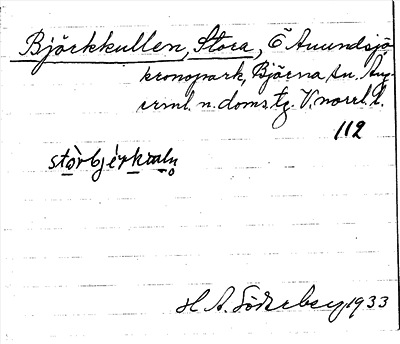 Björkkullen, Stora, Ö Amundsjö
kronopark, Björna sn. Ång-
erml. n. doms. tg. V. norrl. l.
112
stòrbjérkɯln̥
H A. Söderberg 1933